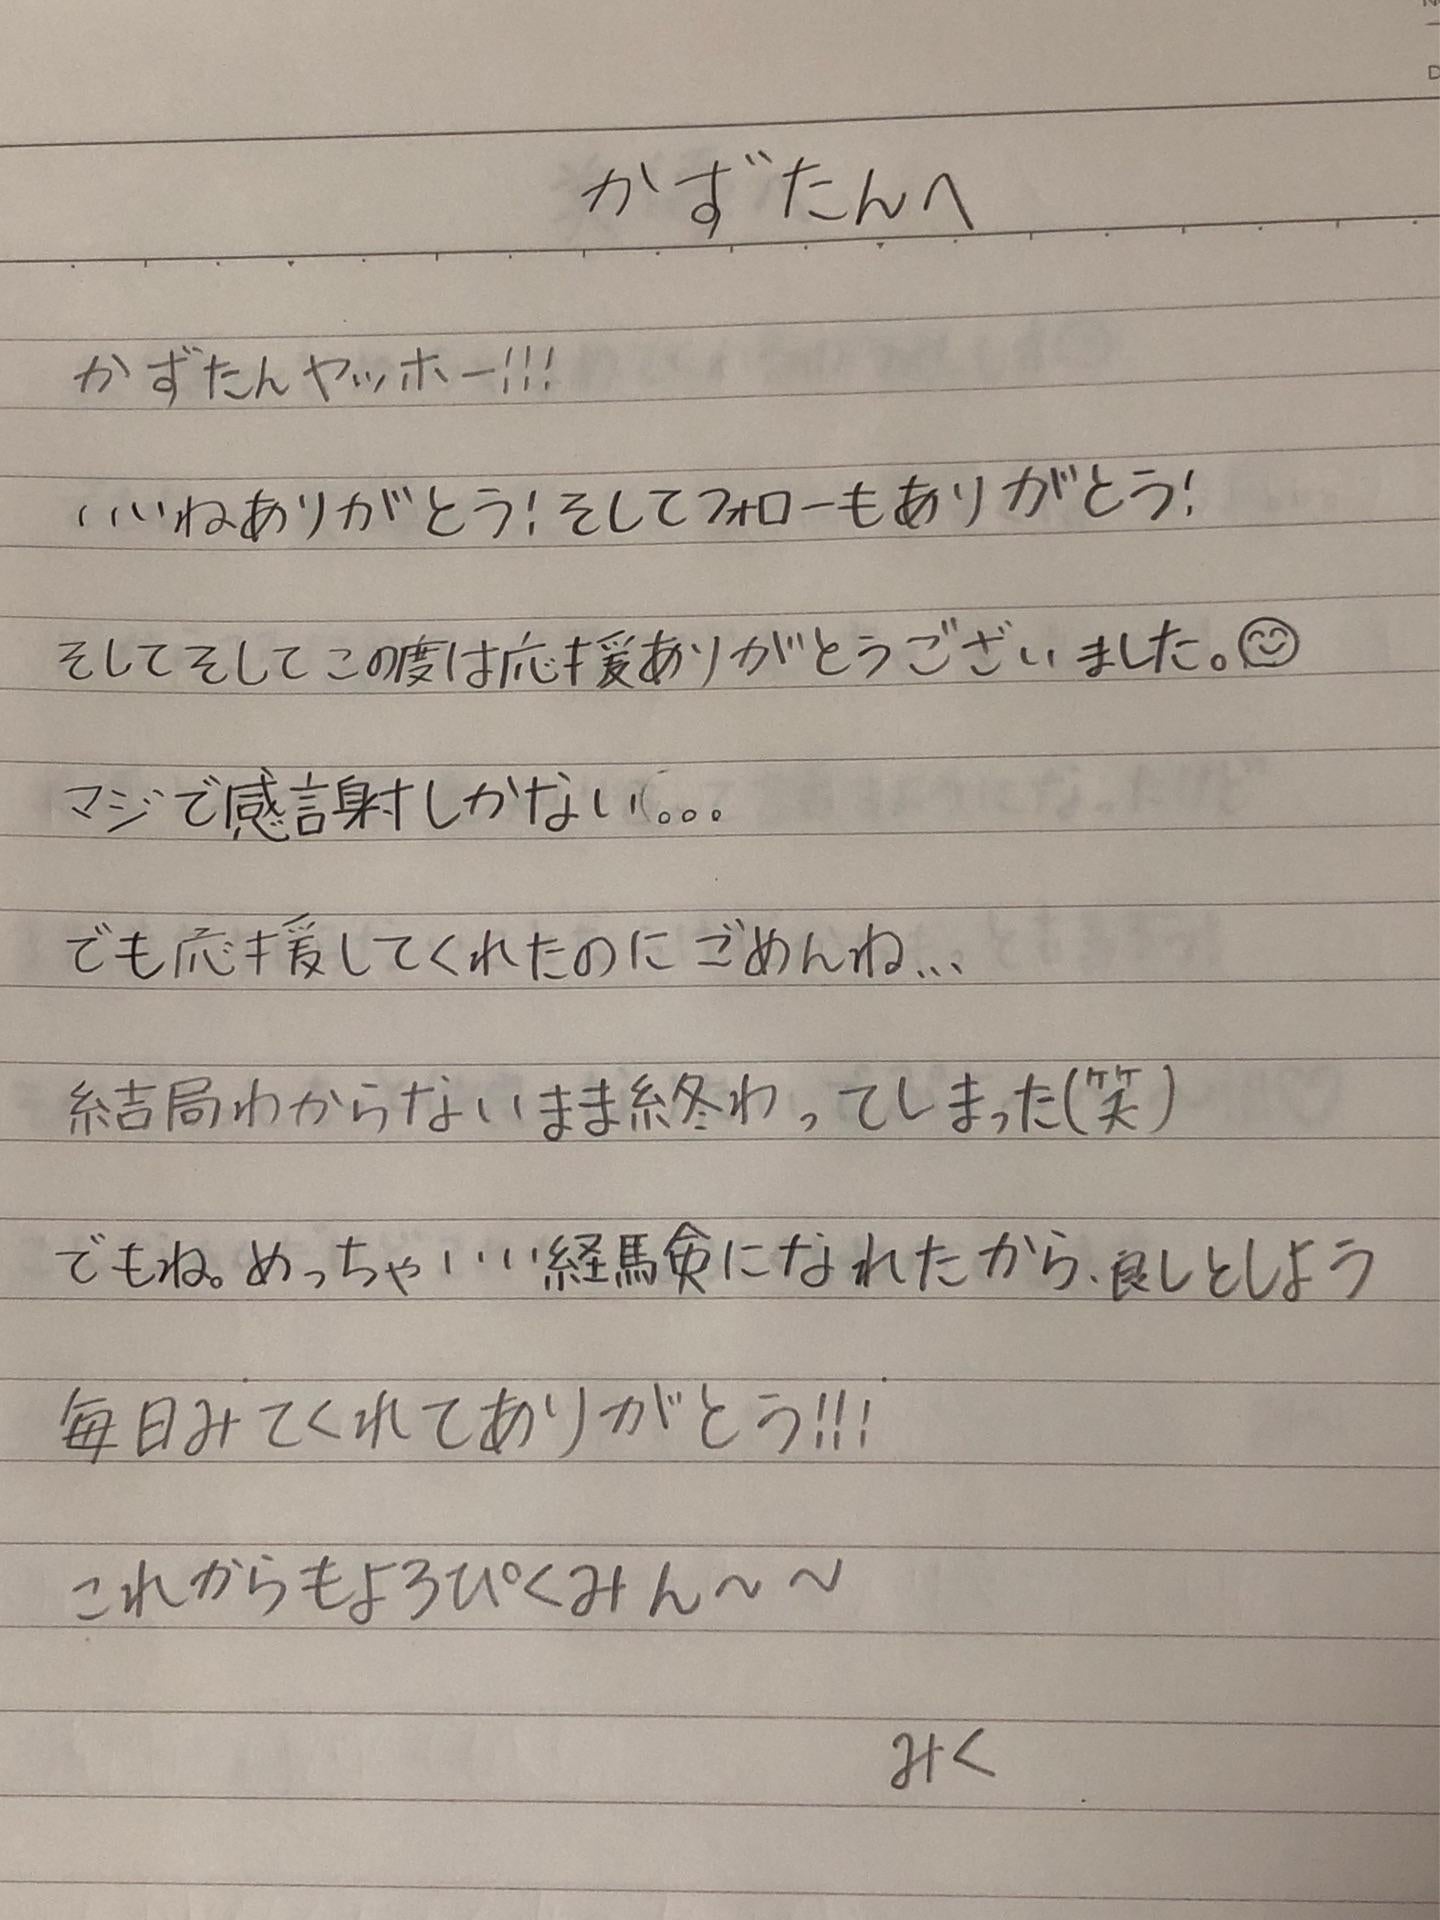 かずたんへ
かずたんヤッホー!!!
いいねありがとう!そしてフォローもありがとう!
そしてそしてこの度は応援ありがとうございました。😊
マジで感謝しかない。。。
でも応援してくれたのにごめんね...
結局わからないまま終わってしまった(笑)
でもね。めっちゃいい経験になれたから、良しとしよう
毎日みてくれてありがとう!!!
これからもよろぴくみん〜〜
みく